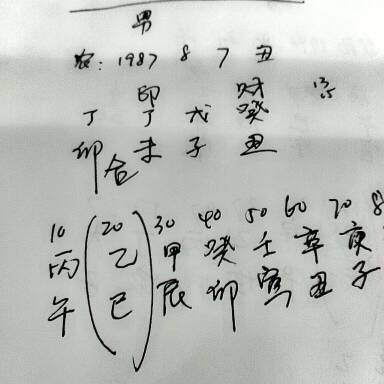 男
农: 1987 8 7 丑
印 财
丁 丁 戊 癸
卯 未 子 丑
合
10 20 30 40 50 60 70 8
丙 乙 甲 癸 壬 辛 庚
午 巳 辰 卯 寅 丑 子